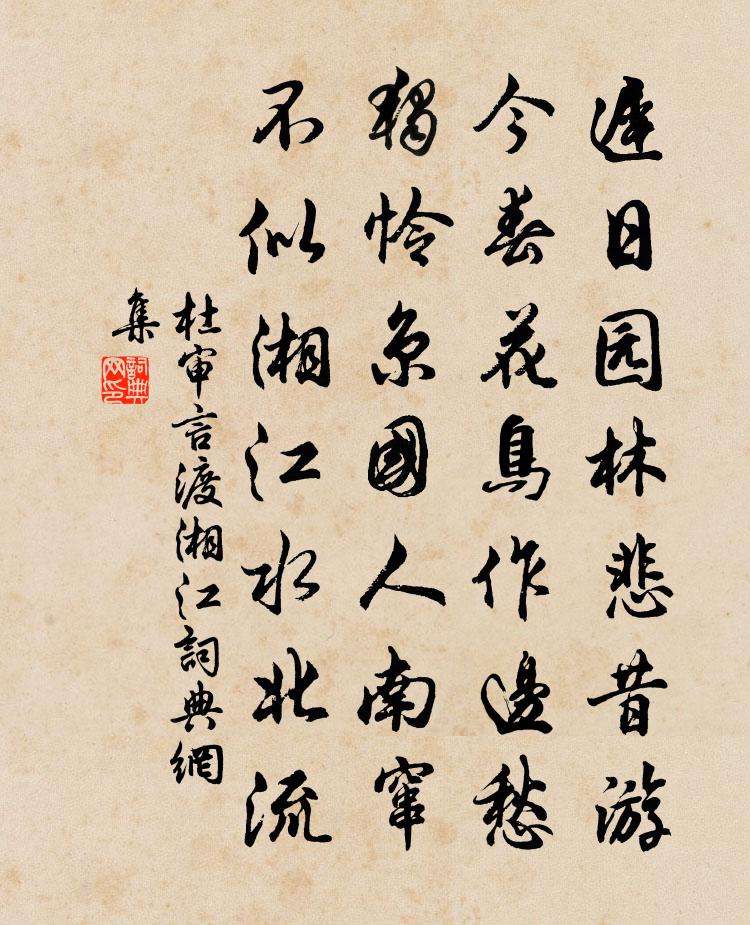 遲日园林悲昔游
今春花鳥作邊愁
獨憐京國人南竄
不似湘江水北流
杜审言渡湘江詞典網
集
詞典
网印